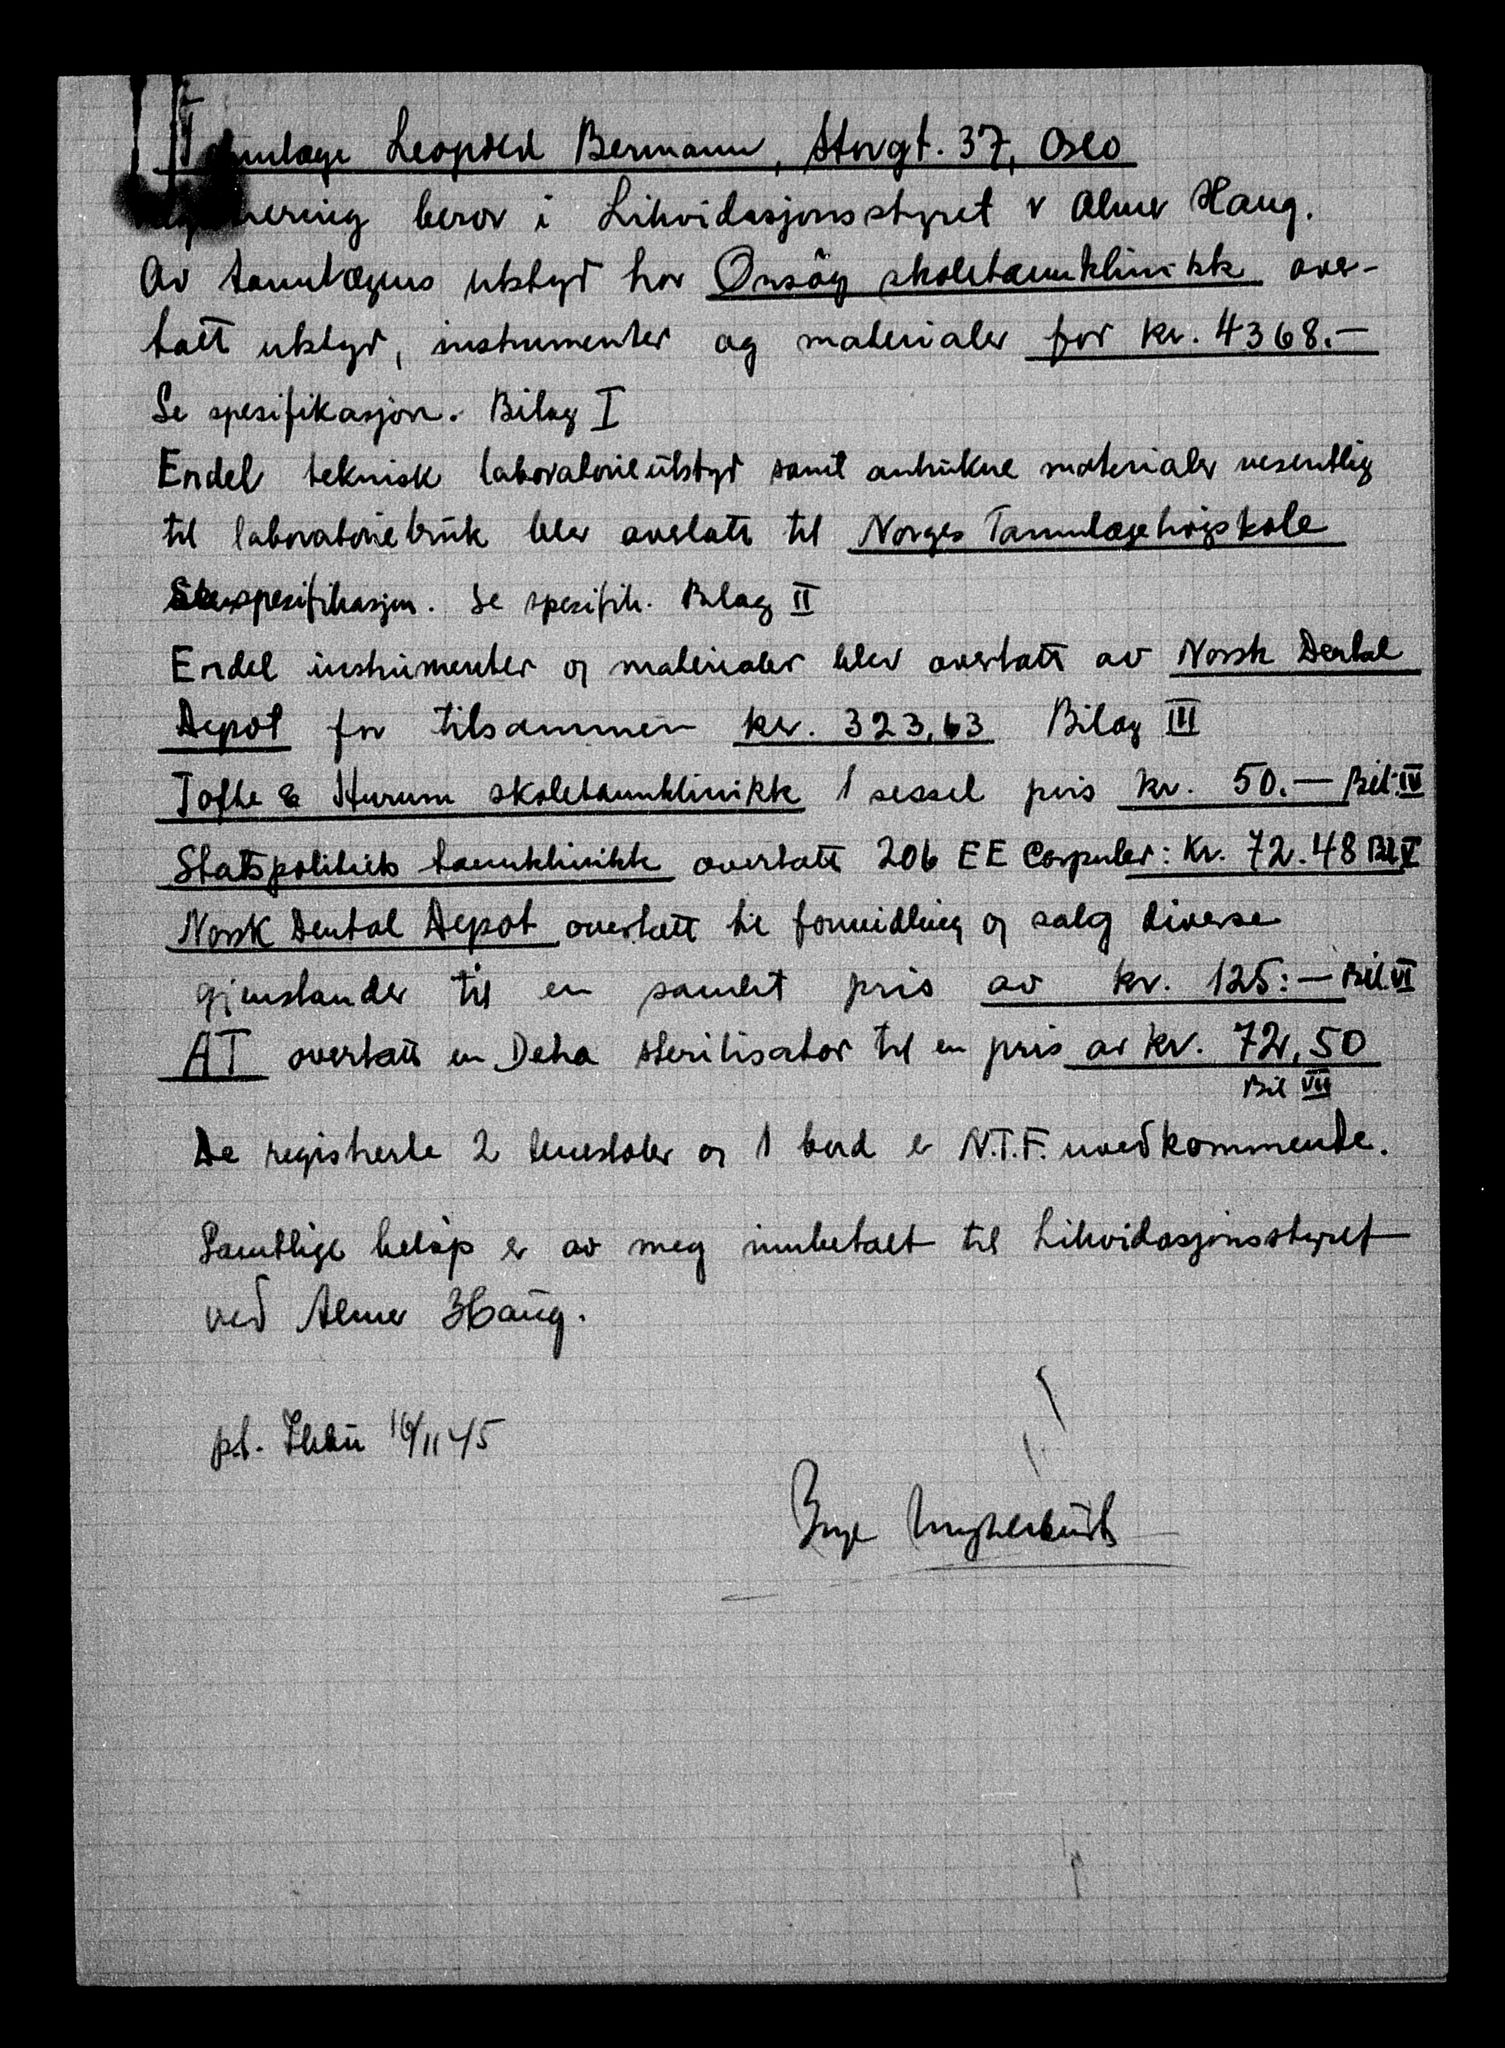 Tannlæge Leopold Bermann, Storgt. 37, Oslo
beror i Likvidasjonsstyret v Almer Haug.
Av tannlægens utstyr har Onsøy skoletannklinikk over-
tatt utstyr, instrumenter og materialer for kr. 4368.—
Se spesifikasjon. Bilag I
Endel teknisk laboratorieutstyr samt antikne materialer vesentlig
til laboratoriebruk blev overlatt til Norges Tannlægehøgskole
spesifikasjon. Se spesifik. Bilag II
Endel instrumenter og materialer blev overtatt av Norsk Dental
Depot for tilsammen kr. 323,63 Bilag III
Tofte & Hurum skoletannklinikk 1 sessel pris kr. 50.— Bil. IV
Statspolitiets tannklinikk overtatt 206 EE Carpuler: Kr. 72.48 Bil V
Norsk Dental Depot overtatt til formidling og salg diverse
gjenstander til en samlet pris av kr. 125:— Bil. VI
AT overtatt en Deha sterilisator til en pris av kr. 72,50
Bil VII
De registrerte 2 lenestoler og 1 bord er N.T.F. uvedkommende.
Samtlige beløp er av meg innbetalt til Likvidasjonsstyret
ved Almer Haug.
p.t. 16/11 45